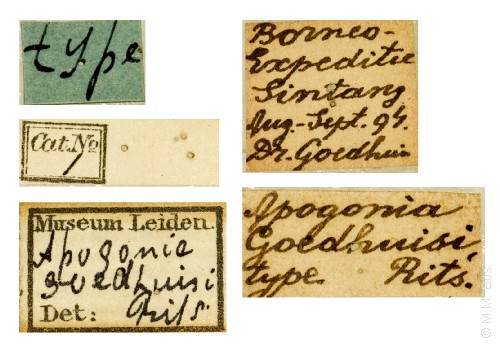 type
Cat. No
7
Museum Leiden.
Apogonia
goedhuisi
Det: Rits.
Borneo-
Expeditie
Sintang
Aug.-Sept. 94.
Dr. Goedhuis
Apogonia
Goedhuisi,
type. Rits.